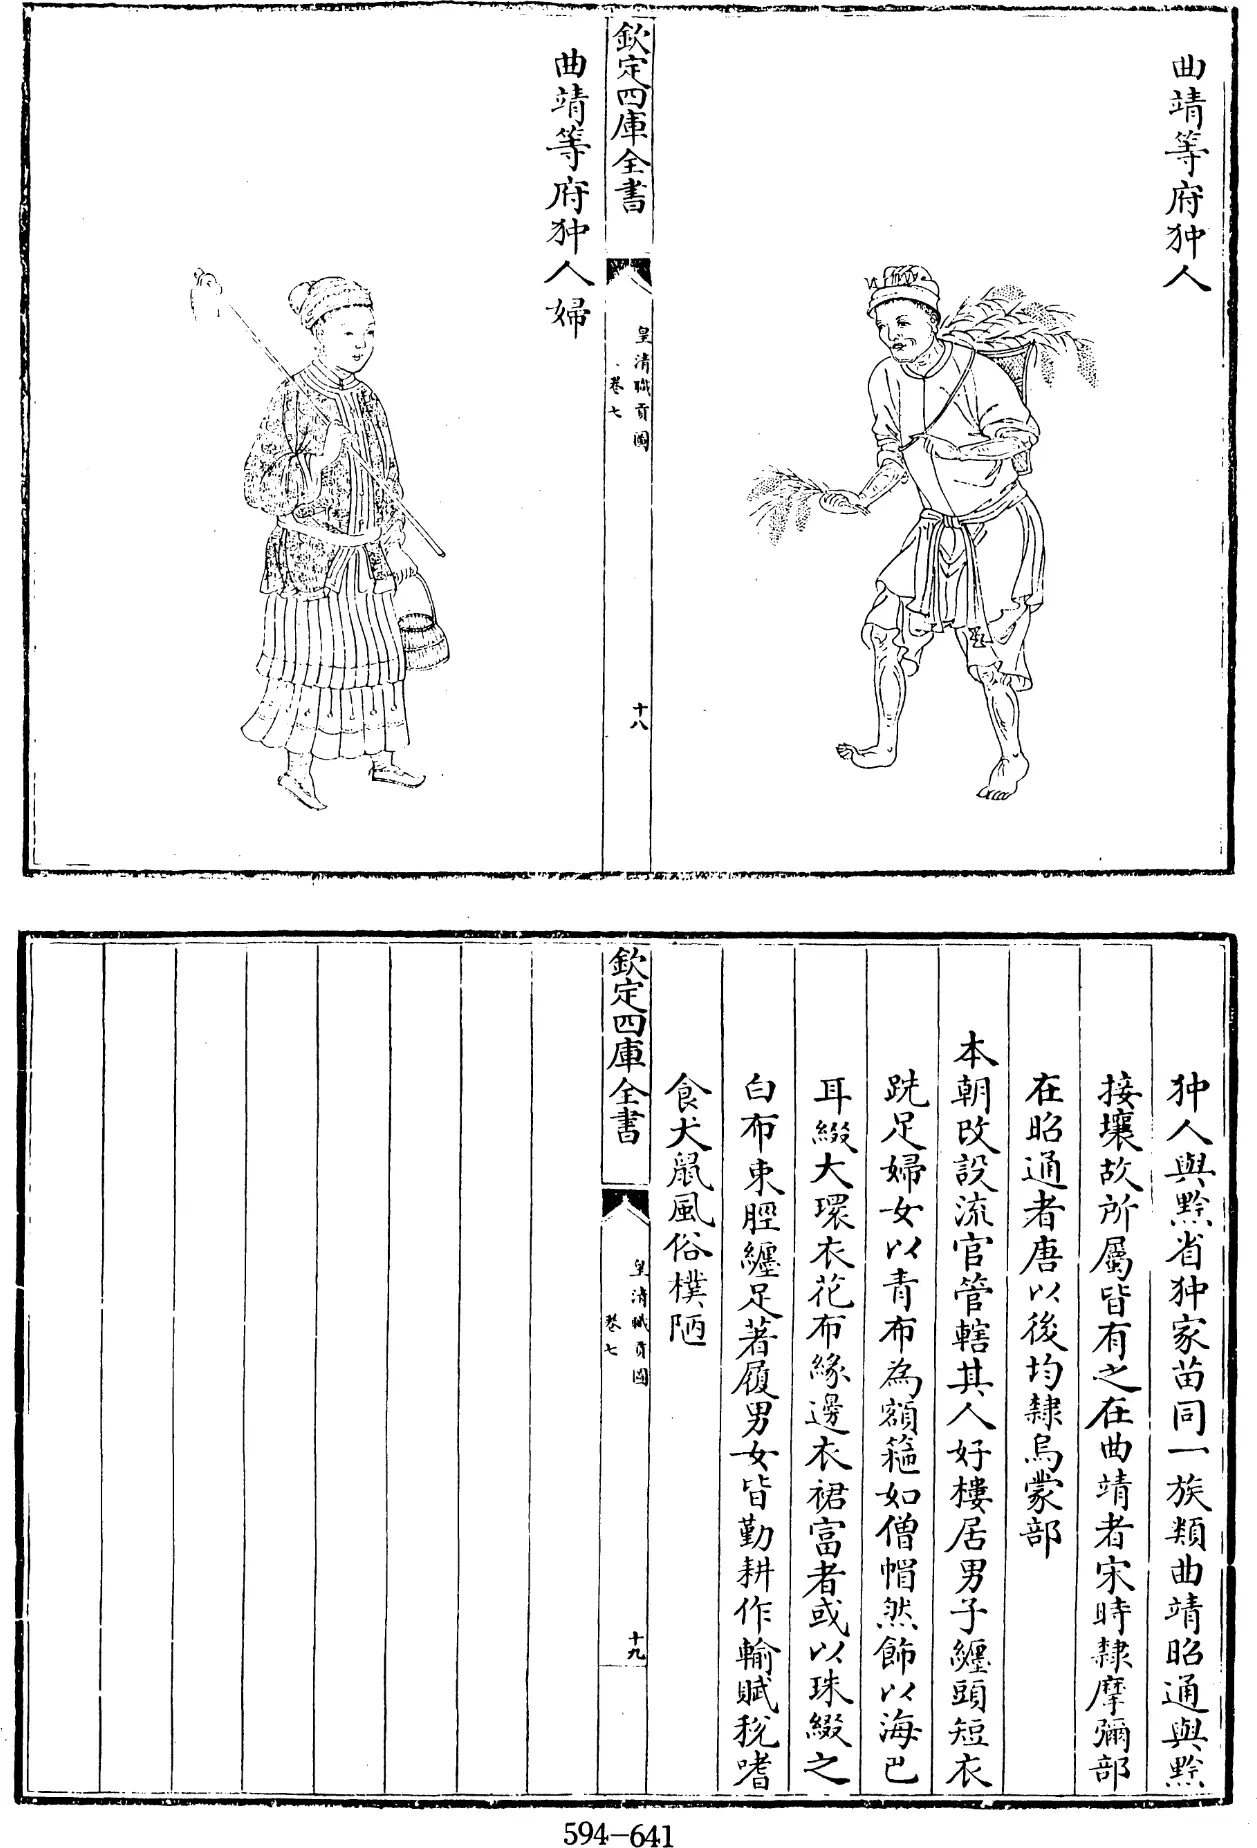 曲靖等府狆人
欽定四庫全書
皇清職貢圖
卷七
十八
曲靖等府狆人婦
狆人與黔省狆家苗同一族類曲靖昭通與黔
接壤故所屬皆有之在曲靖者宋時隸摩彌部
在昭通者唐以後均隸烏蒙部
本朝改設流官管轄其人好樓居男子纏頭短衣
跣足婦女以青布為額箍如僧帽然飾以海巴
耳綴大環衣花布緣邊衣裙富者或以珠綴之
白布束脛纏足著履男女皆勤耕作輸賦稅嗜
食犬鼠風俗樸陋
欽定四庫全書
皇清職貢圖
卷七
十九
594-641